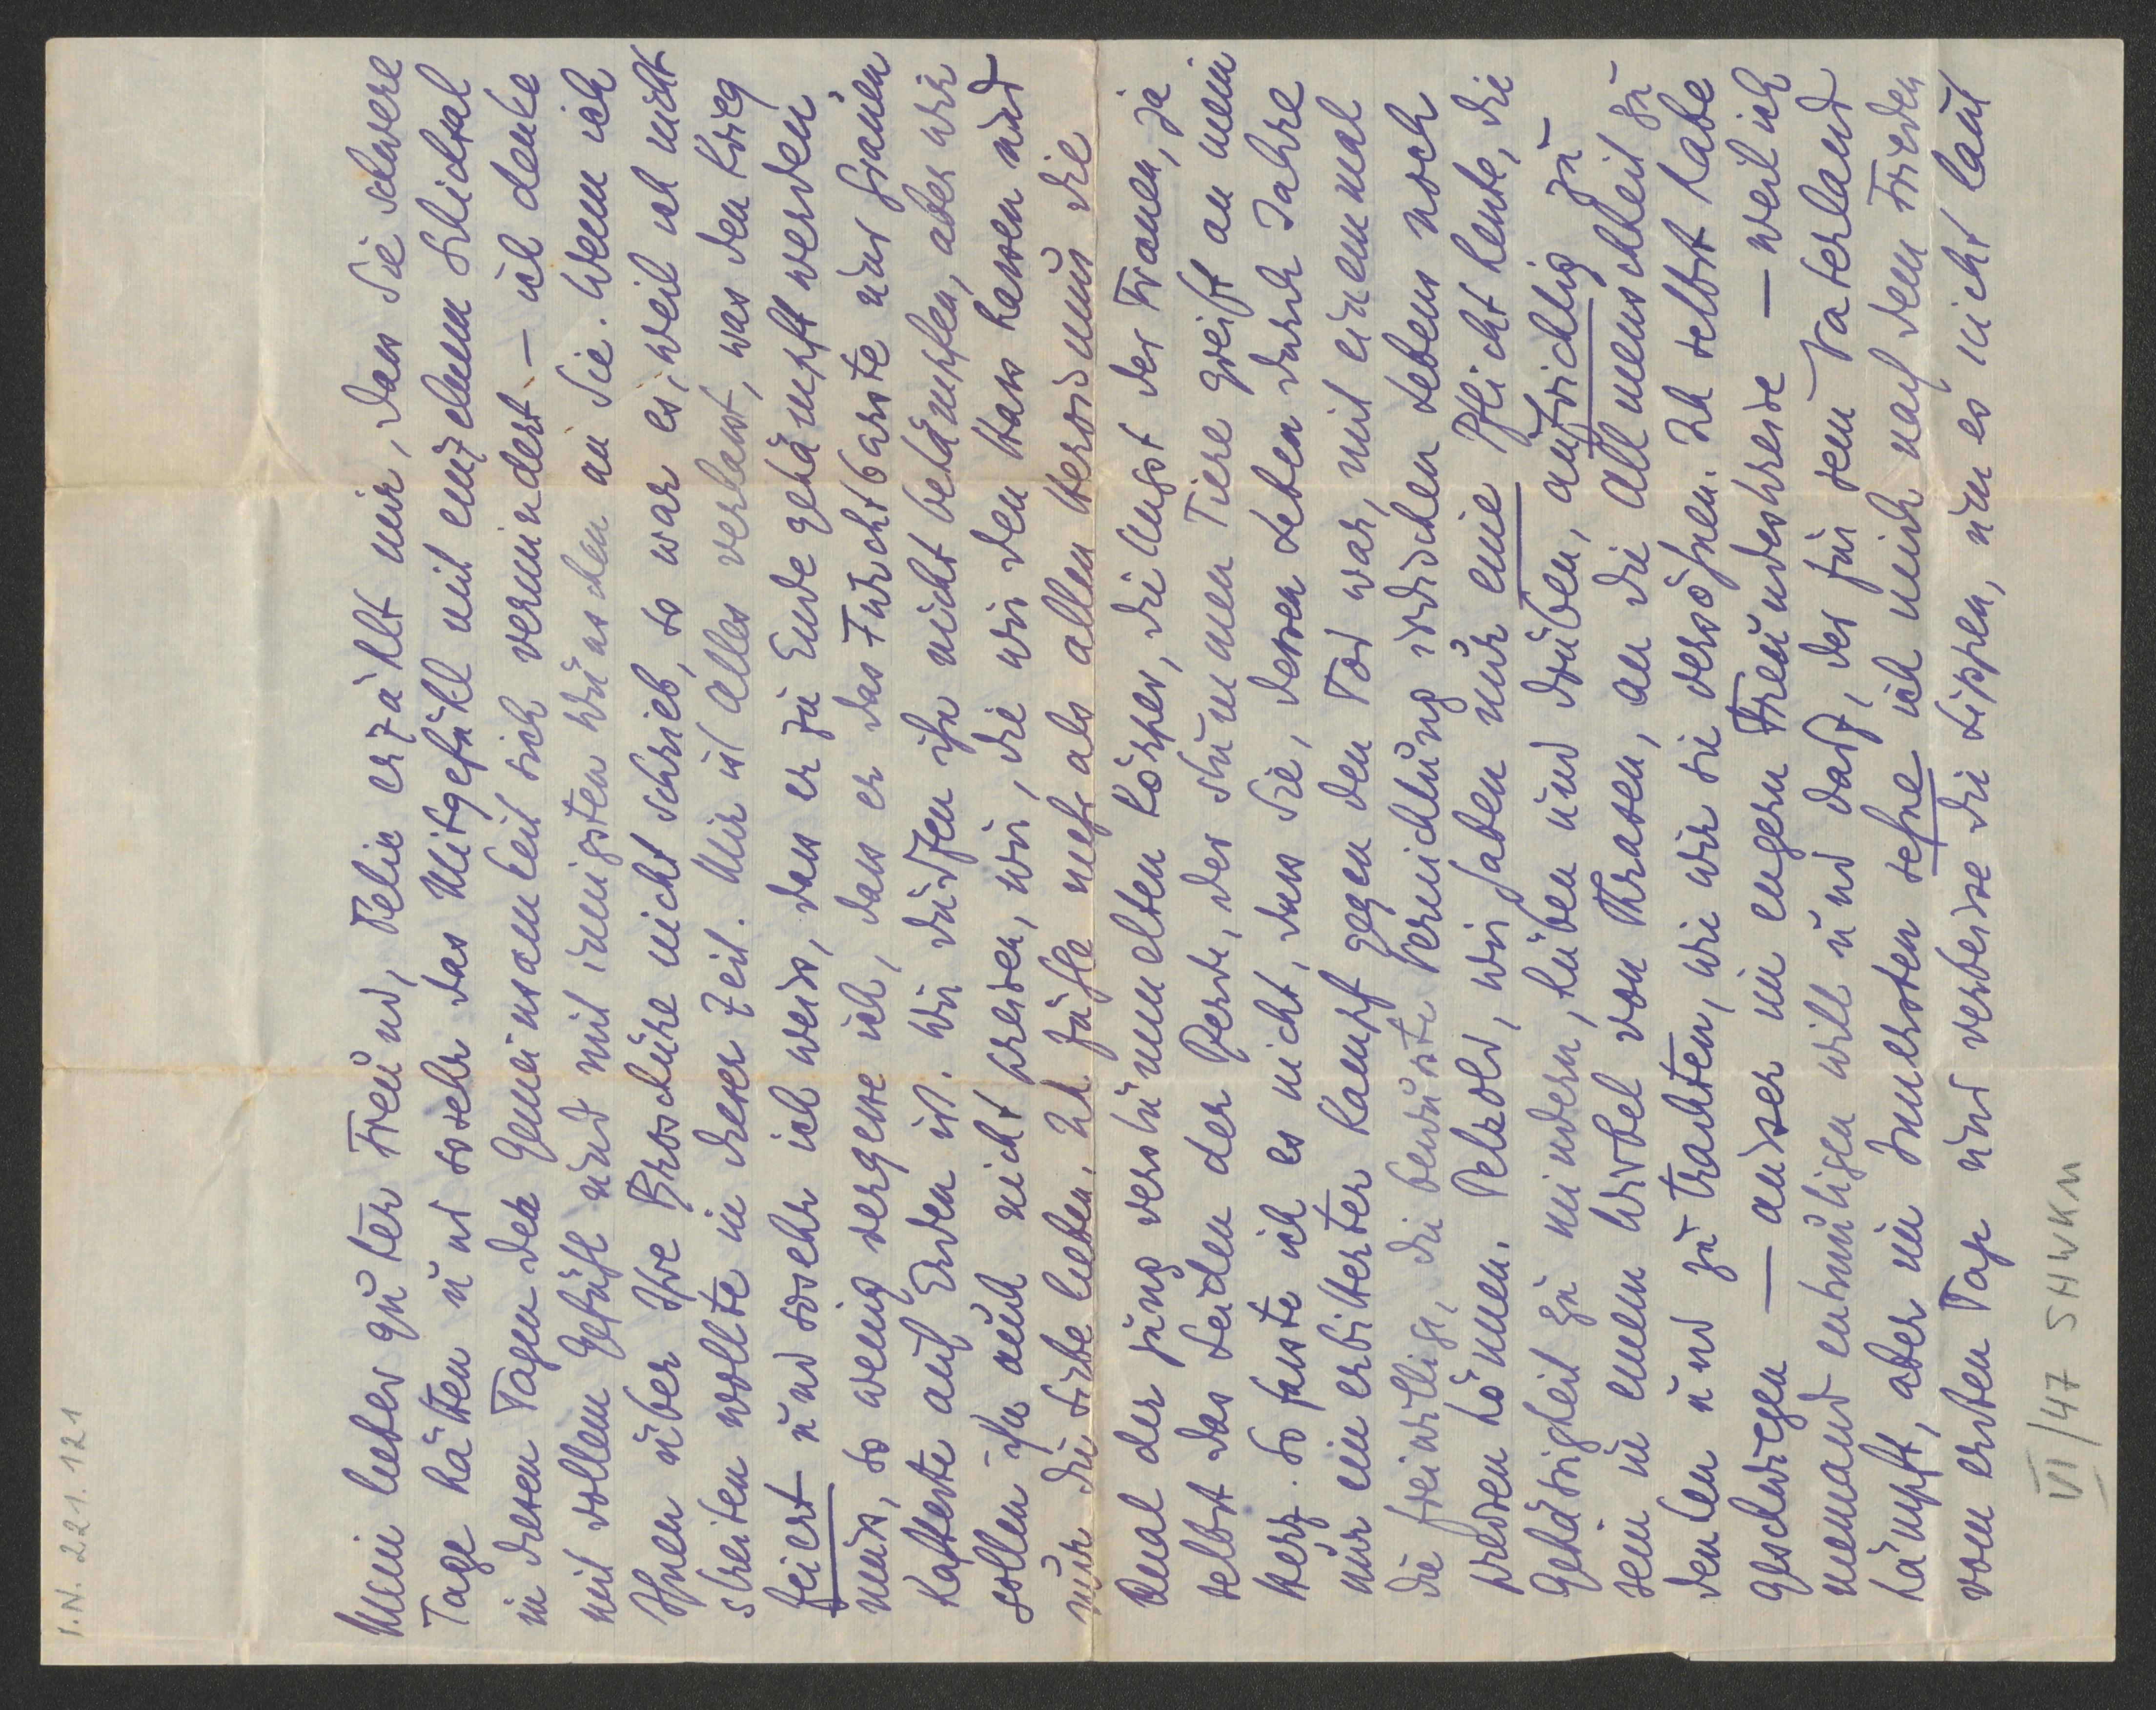 I.N. 221.121
Mein lieber guter Freund, Relin erzählt mir, dass Sie schwere
Tage hätten und so sehr das Mitgefühl mit einzelnem Schicksal
in diesen Tagen der Gemeinsamkeit sich vermindert – ich denke
mit vollem Gefühl und mit innigsten Wünschen an Sie. Wenn ich
Ihnen über Ihre Broschüre nicht schrieb, so war es, weil ich nicht
streiten wollte in dieser Zeit. Mir ist Alles verhasst, was den Krieg
feiert und sosehr ich weiss, dass er zu Ende gekämpft werden
muss, so wenig vergesse ich, dass er das Furchtbarste und Grauen
hafteste auf Erden ist. Wir dürfen ihn nicht bekämpfen, aber wir
sollen ihn auch nicht preisen, wir, die wir den Hass hassen und
nur die Liebe lieben. Ich fühle mehr als allen Heroismus die
Qual der jung verstümmelten Körper, die Angst der Frauen, ja
selbst das Leiden der Pferde, der stummen Tiere greift an mein
Herz. So fasste ich es nicht, dass Sie, dessen Leben durch Jahre
nur ein erbitterter Kampf gegen den Tod war, mit einemmal
die freiwillige, die bewusste Vernichtung irdischen Lebens noch
preisen können. Petzold, wir haben nur eine Pflicht heute, die
Gehässigkeit zu mindern, hüben und drüben, aufrichtig zu
sein in einem Wirbel von Phrasen, an die Allmenschheit zu
denken und zu trachten, wie wir sie versöhnen. Ich selbst habe
geschwiegen – ausser im engern Freundeskreise – weil ich
niemand entmutigen will und darf, der für sein Vaterland
kämpft, aber im Innersten sehne ich mich nach dem Frieden
vom ersten Tag und verbeisse die Lippen, um es nicht laut
VI/47 SHWKM